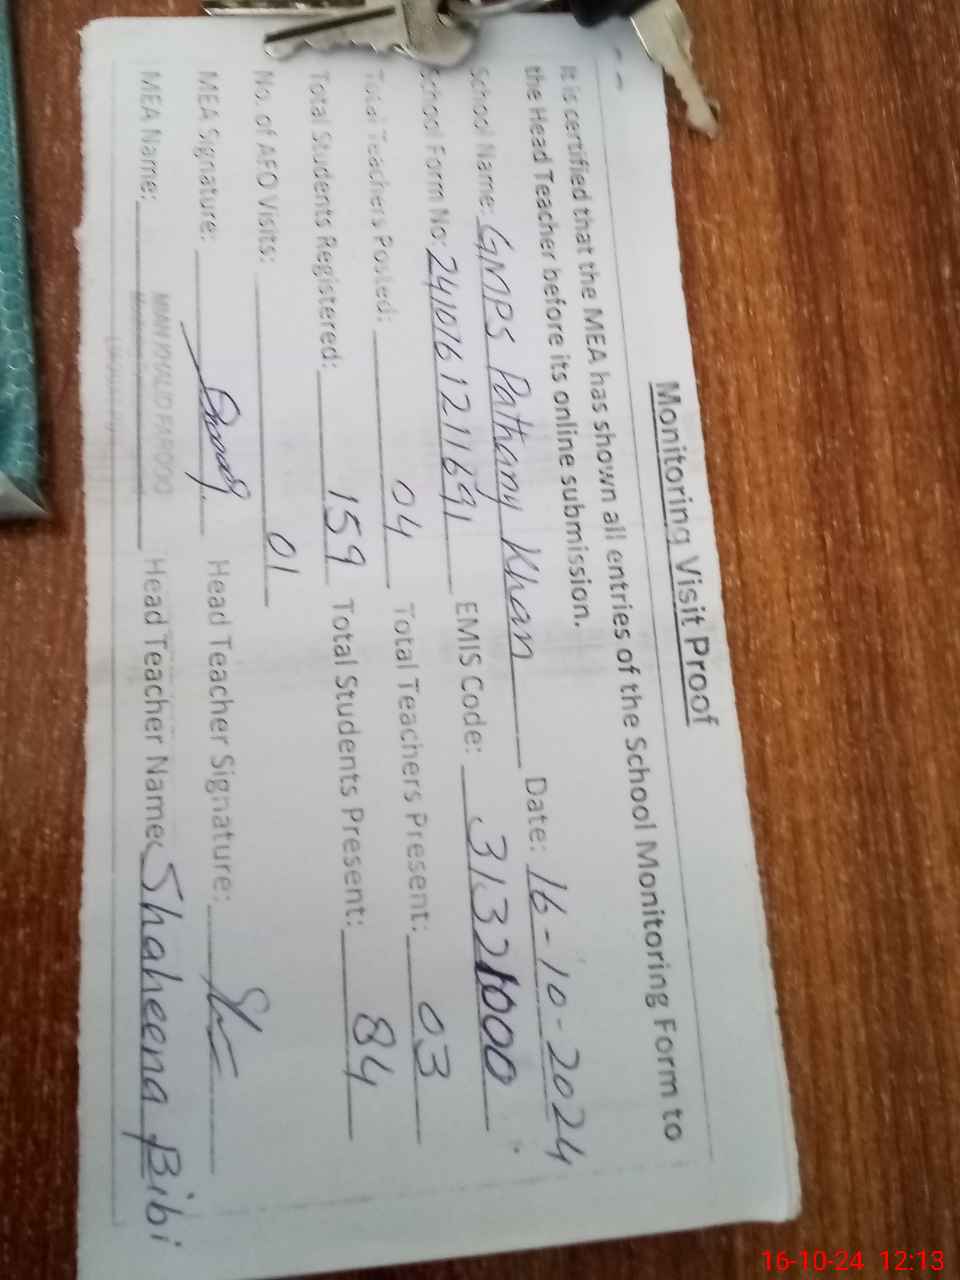 Monitoring Visit Proof
It is certified that the MEA has shown all entries of the School Monitoring Form to
the Head Teacher before its online submission.
School Name: GMPS Pathany Khan Date: 16-10-2024
School Form No: 241016121691 EMIS Code: 31321000
Total Teachers Posted: 04 Total Teachers Present: 03
Total Students Registered: 159 Total Students Present: 84
No. of AEO Visits: 01
MEA Signature: Head Teacher Signature:
MEA Name: KHALID FAROOQ Head Teacher Name: Shaheena Bibi
16-10-24 12:13